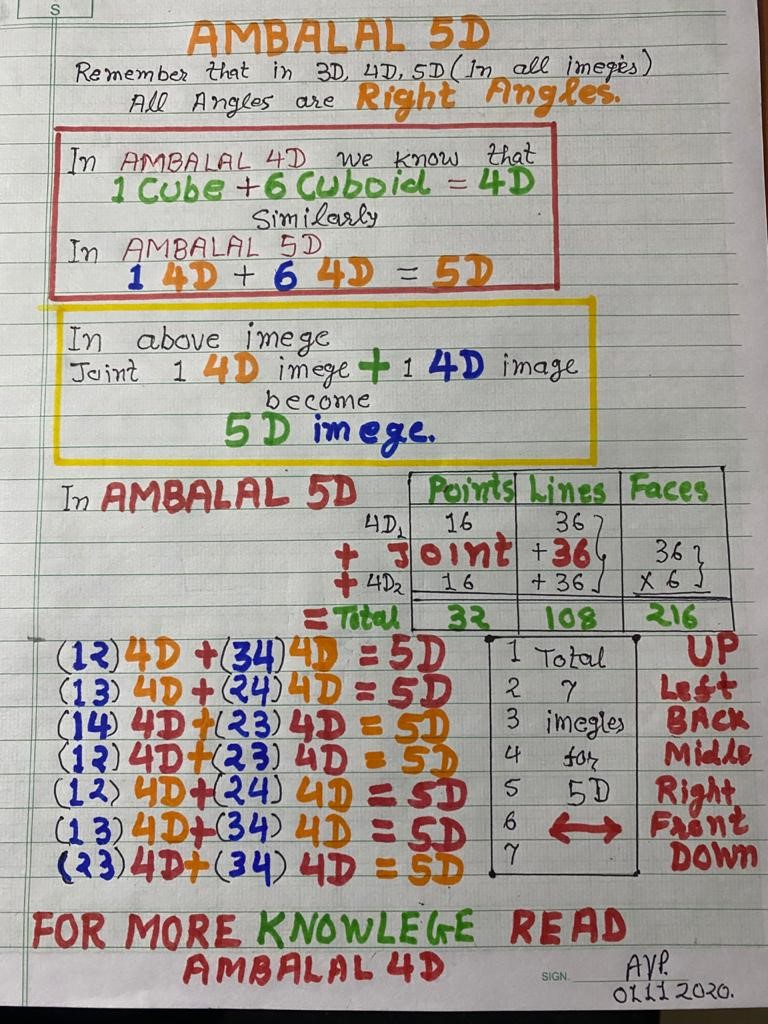 S
AMBALAL 5D
Remember that in 3D, 4D, 5D (In all imeges)
All Angles are Right Angles.
In AMBALAL 4D we know that
1 Cube + 6 Cuboid = 4D
Similarly
In AMBALAL 5D
1 4D + 6 4D = 5D
In above imege
Joint 1 4D imege + 1 4D image
become
5D imege.
In AMBALAL 5D
Points Lines Faces
4D1 16 36
+ Joint +36 36
+ 4D2 16 +36 x 6
= Total 32 108 216
(12) 4D + (34) 4D = 5D 1 Total UP
(13) 4D + (24) 4D = 5D 2 7 Left
(14) 4D + (23) 4D = 5D 3 imegles BACK
(12) 4D + (23) 4D = 5D 4 for Middle
(12) 4D + (24) 4D = 5D 5 5D Right
(13) 4D + (34) 4D = 5D 6 ↔ Front
(23) 4D + (34) 4D = 5D 7 DOWN
FOR MORE KNOWLEGE READ
AMBALAL 4D
SIGN. AVP.
01112020.